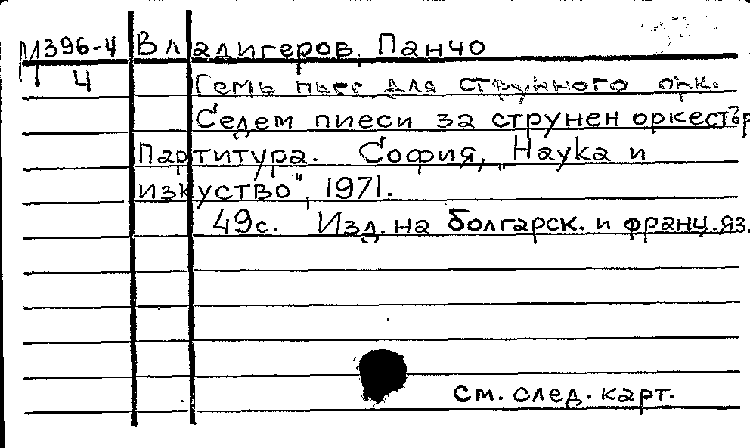 М396-4 Владигеров, Панчо
Ч Семь пьес для струнного орк.
Седем пиеси за струнен оркестър
Партитура. София, „Наука и
изкуство", 1971.
49с. Изд. на болгарск. и франц. яз.
см. след. карт.